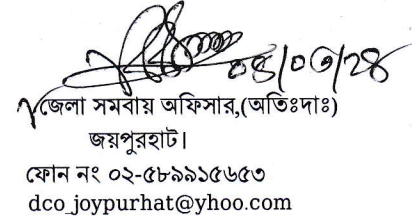 ০৪/০৩/২৪
জেলা সমবায় অফিসার,(অতিঃদাঃ)
জয়পুরহাট।
ফোন নং ০২-৫৮৯৯১৫৬৫৩
dco_joypurhat@yhoo.com